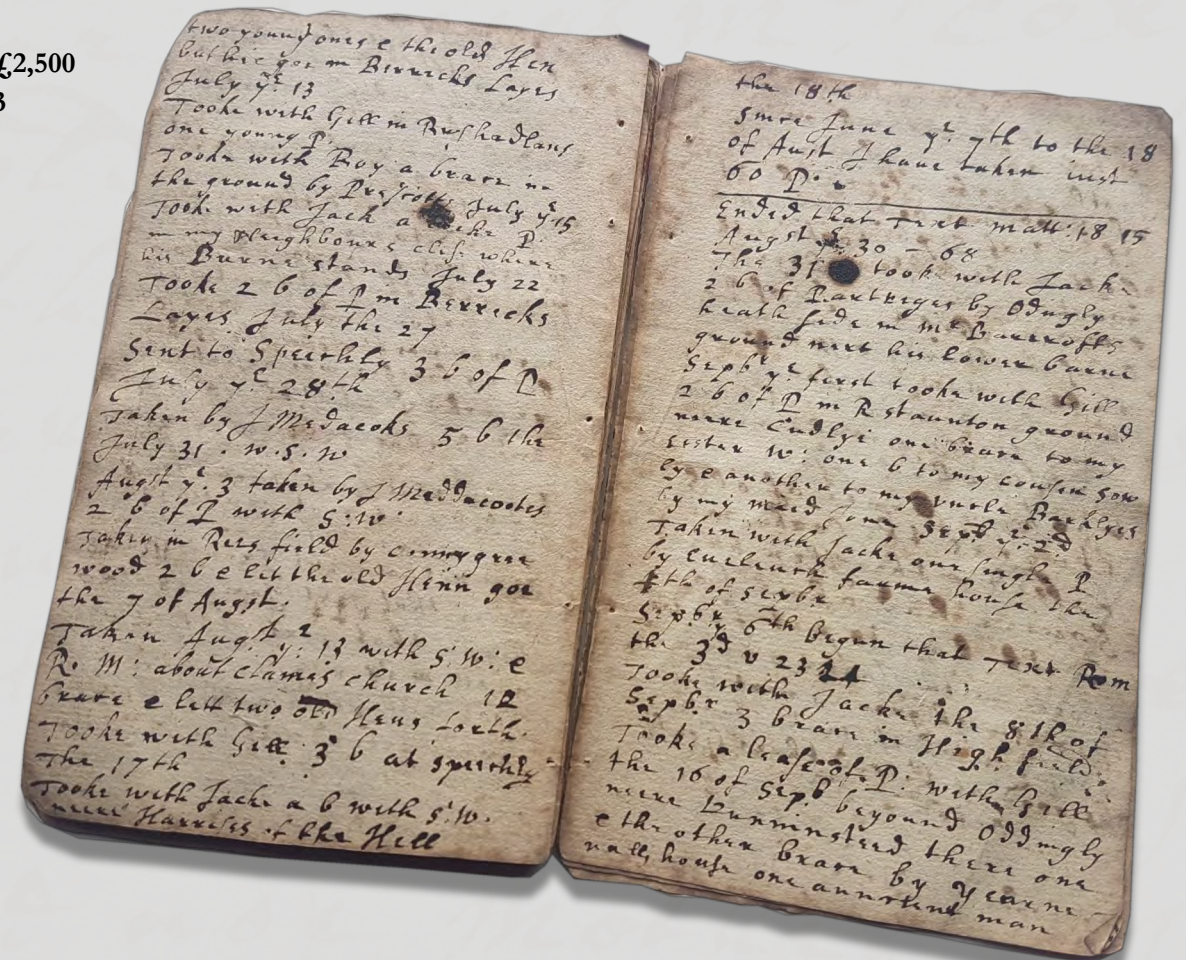 £2,500
3
two young ones e the old Hen
but hee goe in Berricks Layes
July ye 13
Tooke with Gill in Bushadlans
one young P.
Tooke with Boy a brace in
the ground by Prescots July ye 15
Tooke with Jack a P
in my Neighbours close where
his Barne stands July 22
Tooke 2 b of P in Berricks
Layes July the 27
Sent to Speechly 3 b of P
July ye 28th
Taken by J Medacoks 5 b the
July 31 . w . S . w
Augst ye. 3 taken by J Meddacootes
2 b of P with S : W
Taken in Rees field by connygree
wood 2 b e let the old Henn goe
the 7 of Augst.
Taken Augst ye. 13 with S : W : e
R. M : about Clames church 12
brace e lett two old Hens forth.
Tooke with Gill 3 b at speechly
The 17th
Tooke with Jacke a b with S : W .
neere Harrises of the Hill
the 18th
Since June ye. 7th to the 18
of Aust I have taken just
60 P.
Ended that Text Matt: 18 15
Augst ye. 30 - 68
The 31 took with Jacke
2 b of Partriges by Odingly
heath side in mr Barcrofts
ground next his lower barne
Sepbr ye first tooke with Gill
2 b of P in R Staunton ground
neere Cudlyi one brace to my
sister W : one b to my cousen Sow
ly e another to my uncle Barklyes
by my maid Jone Sepb ye. 2d
Taken with Jacke one single P
by farme house the
4th of Sepbr
Sepbr ye 6th begun that Text Rom
the 3d v 23 24
Tooke with Jacke the 8th of
Sepbr 3 brace in High field.
Tooke a lease of P. with Gill
the 16 of Sepb beyound Oddingly
neere Dunninsteed there one
e the other brace by yearne
nalls house one aunctient man